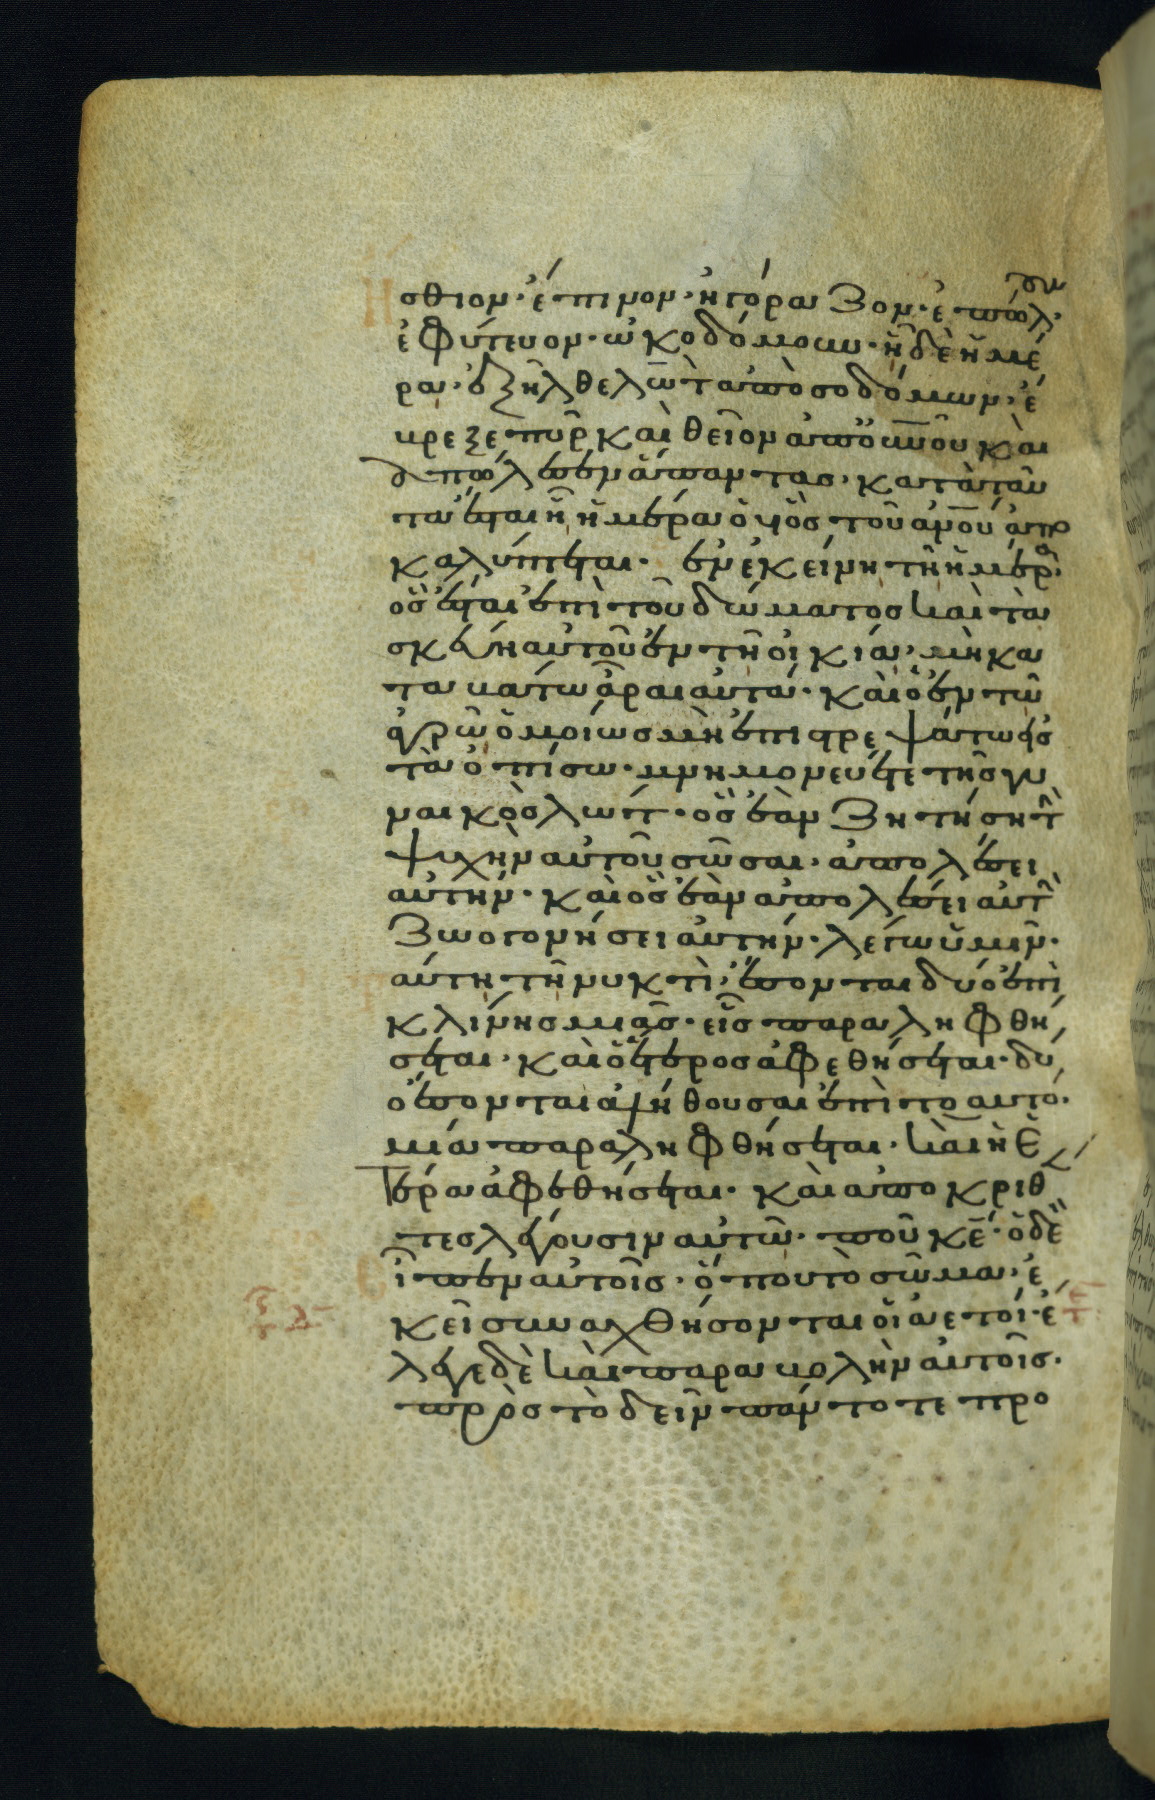 σθιον· έπινον· ἠγόραζον· ἐπώλουν·
ἐφύτευον· ὠκοδόμουν· ᾗ δὲ ἡμέ
ρα· ἐξῆλθε λὼτ ἀπὸ σοδόμων· ἔ
βρεξε πῦρ καὶ θεῖον ἀπ οὐνοῦ καὶ
ἀπώλεσεν ἅπαντας· κατὰ ταῦ
τα ἔσται ᾗ ἡμέρα ὁ υἱὸς τοῦ ἀνοῦ ἀπο
καλύπτεται· ἐν ἐκείνη τῆ ἡμέρα·
ὃς ἔσται ἐπὶ τοῦ δώματος καὶ τὰ
σκεύη αὐτοῦ ἐν τῆ οἰκία· μὴ κα
τα βάτω ἆραι αὐτά· καὶ ὁ ἐν τῶ
ἀγρῶ ὁμοίως μὴ ἐπιστρεψάτω εἰς
τὰ ὀπίσω· μνημονεύετε τῆς γυ
ναικὸς λώτ· ὃς ἐὰν ζητήση τὴν
ψυχὴν αὐτοῦ σῶσαι· ἀπολέσει
αὐτήν· καὶ ὃς ἐὰν ἀπολέσει αὐτὴν
ζωογονήσει αὐτήν· λέγω ὑμῖν·
αύτη τῆ νυκτὶ· ἔσονται δύο ἐπὶ
κλίνης μιᾶς· εἷς παραληφθή
σεται· καὶ ὁ ἕτερος ἀφεθήσεται· δύ
ο ἔσονται ἀλήθουσαι ἐπὶ το αυτό·
μία παραληφθήσεται· καὶ ἡ ἑ
τέρα ἀφεθήσεται· καὶ ἀποκριθέν
τες λέγουσιν αὐτῶ· ποῦ κε· ὁ δὲ
εἶπεν αὐτοῖς· ὅπου τὸ σῶμα· ἐ
κεῖ συναχθήσονται οἱ ἀετοί· ἔ
λεγε δὲ καὶ παραβολὴν αὐτοῖς·
πρὸς τὸ δεῖν πάντοτε προ